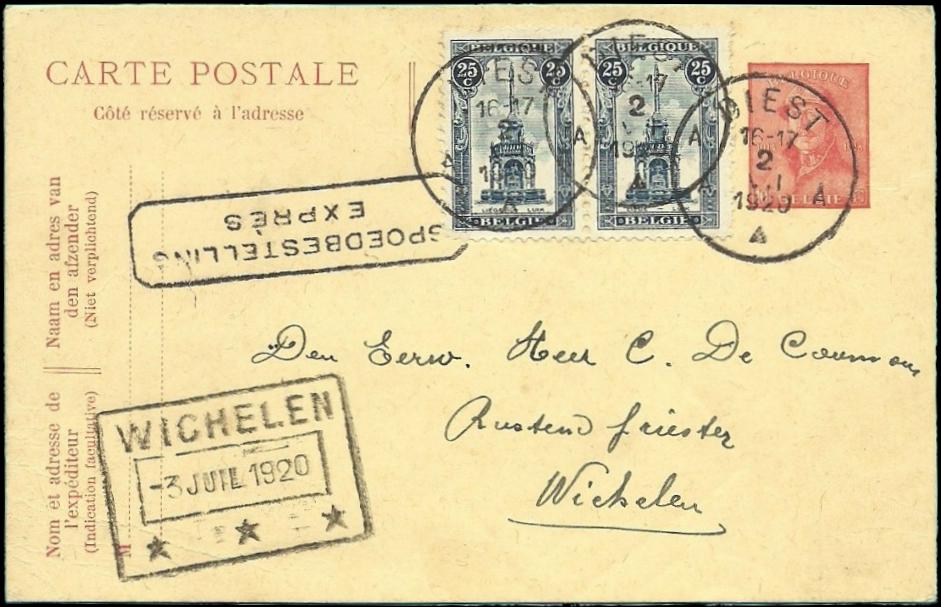 CARTE POSTALE
Côté réservé à l'adresse
BELGIQUE
25 C 25 C
BELGIE
BELGIQUE
25 C 25 C
BELGIE
BELGIQUE
BELGIE
DIEST
16-17
2
1920
A A
16-17
2
A A
DIEST
16-17
2
VII
1920 A
A
SPOEDBESTELLING
EXPRÈS
Naam en adres van
den afzender
(Niet verplichtend)
Nom et adresse de
l'expéditeur
(Indication facultative)
M
Den Eerw. Heer C. De
Rustend Priester
Wichelen
WICHELEN
-3 JUIL 1920